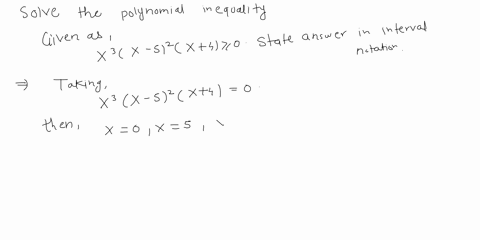 Solve the polynomial inequality
Given as,
x³(x-5)²(x+4)≥0. State answer in interval
notation.
⇒ Taking,
x³(x-5)²(x+4) = 0.
then, x=0, x=5, \